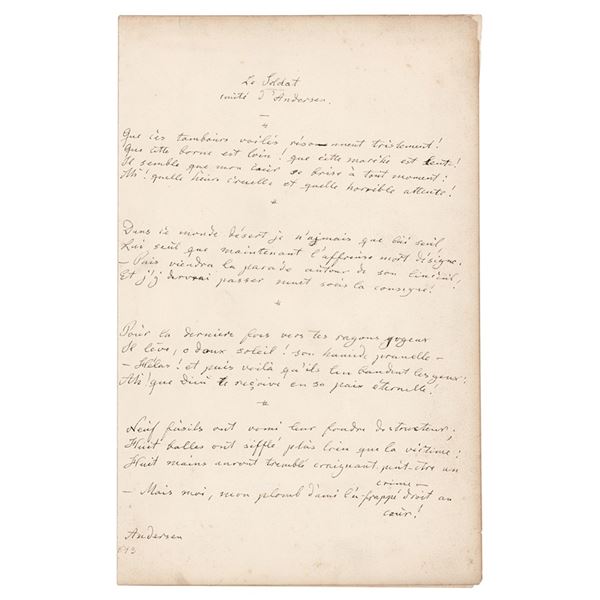 Le Soldat
imité d'Andersen.
Que ces tambours voilés résonnent tristement!
Que cette borne est loin! que cette marche est lente!
Il semble que mon cœur se brise à tout moment:
Ah! quelle heure cruelle et quelle horrible attente!
*
Dans ce monde désert je n'aimais que lui seul,
Lui seul que maintenant l'affreuse mort désigne.
- Puis viendra la parade autour de son linceul,
Et j'y devrai passer muet sous la consigne!
*
Pour la dernière fois vers tes rayons joyeux
Il lève, o doux soleil! son humide prunelle -
- Hélas! et puis voilà qu'ils lui bandent les yeux:
Ah! que Dieu te reçoive en sa paix éternelle!
*
Neuf fusils ont vomi leur foudre destructeur;
Huit balles ont sifflé plus loin que la victime:
Huit mains auront tremblé craignant peut-être un
crime -
- Mais moi, mon plomb d'ami l'a frappé droit au
cœur!
Andersen